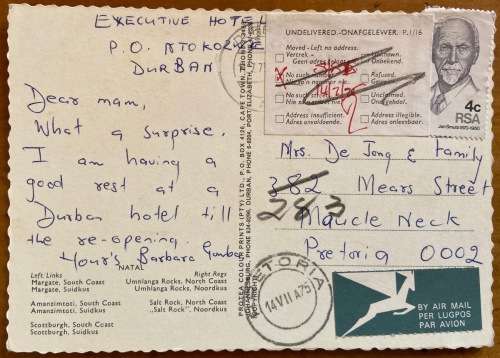 EXECUTIVE HOTEL
P.O. NTOKOZWENI
DURBAN
Dear mam,
What a surprise.
I am having a
good rest at a
Durban hotel till
the re-opening.
Your's Barbara
NATAL
Left Links
Margate, South Coast
Margate, Suidkus
Amanzimtoti, South Coast
Amanzimtoti, Suidkus
Scottburgh, South Coast
Scottburgh, Suidkus
Right Regs
Umhlanga Rocks, North Coast
Umhlanga Rocks, Noordkus
Salt Rock, North Coast
„Salt Rock", Noordkus
PROTEA COLOUR PRINTS (PTY) LTD., P.O. BOX 4126, CAPE TOWN,
UNDELIVERED - ONAFGELEWER. P.1/16
Moved - Left no address.
Vertrek -
Geen adres
Unknown.
Onbekend.
No such
Refused.
No such
Unclaimed.
Onafgehaal.
Address insufficient.
Adres onvoldoende.
Address illegible.
Adres onleesbaar.
4c
RSA
Jan Smuts 1870-1950
Mrs. De Jong & Family
382 Mears Street
283
Maucle Neck
Pretoria 0002
PRETORIA
14 VII A75
BY AIR MAIL
PER LUGPOS
PAR AVION